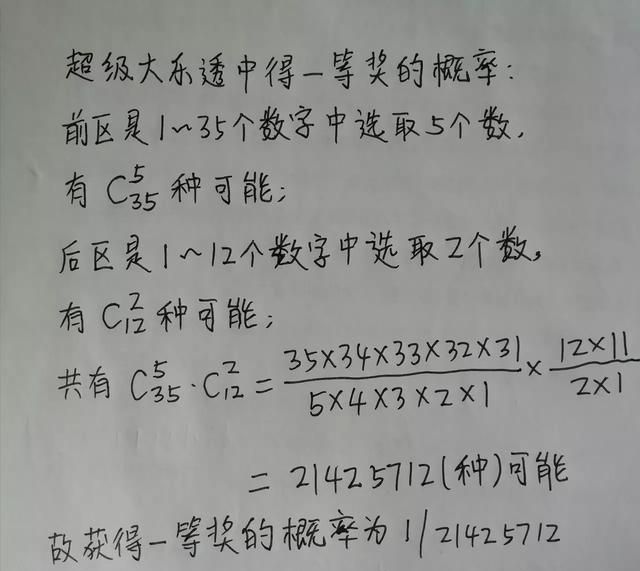 超级大乐透中得一等奖的概率:
前区是1~35个数字中选取5个数,
有 C₃₅⁵ 种可能;
后区是1~12个数字中选取2个数,
有 C₁₂² 种可能;
共有 C₃₅⁵·C₁₂² = 35×34×33×32×31/5×4×3×2×1 × 12×11/2×1
= 21425712(种)可能
故获得一等奖的概率为 1/21425712